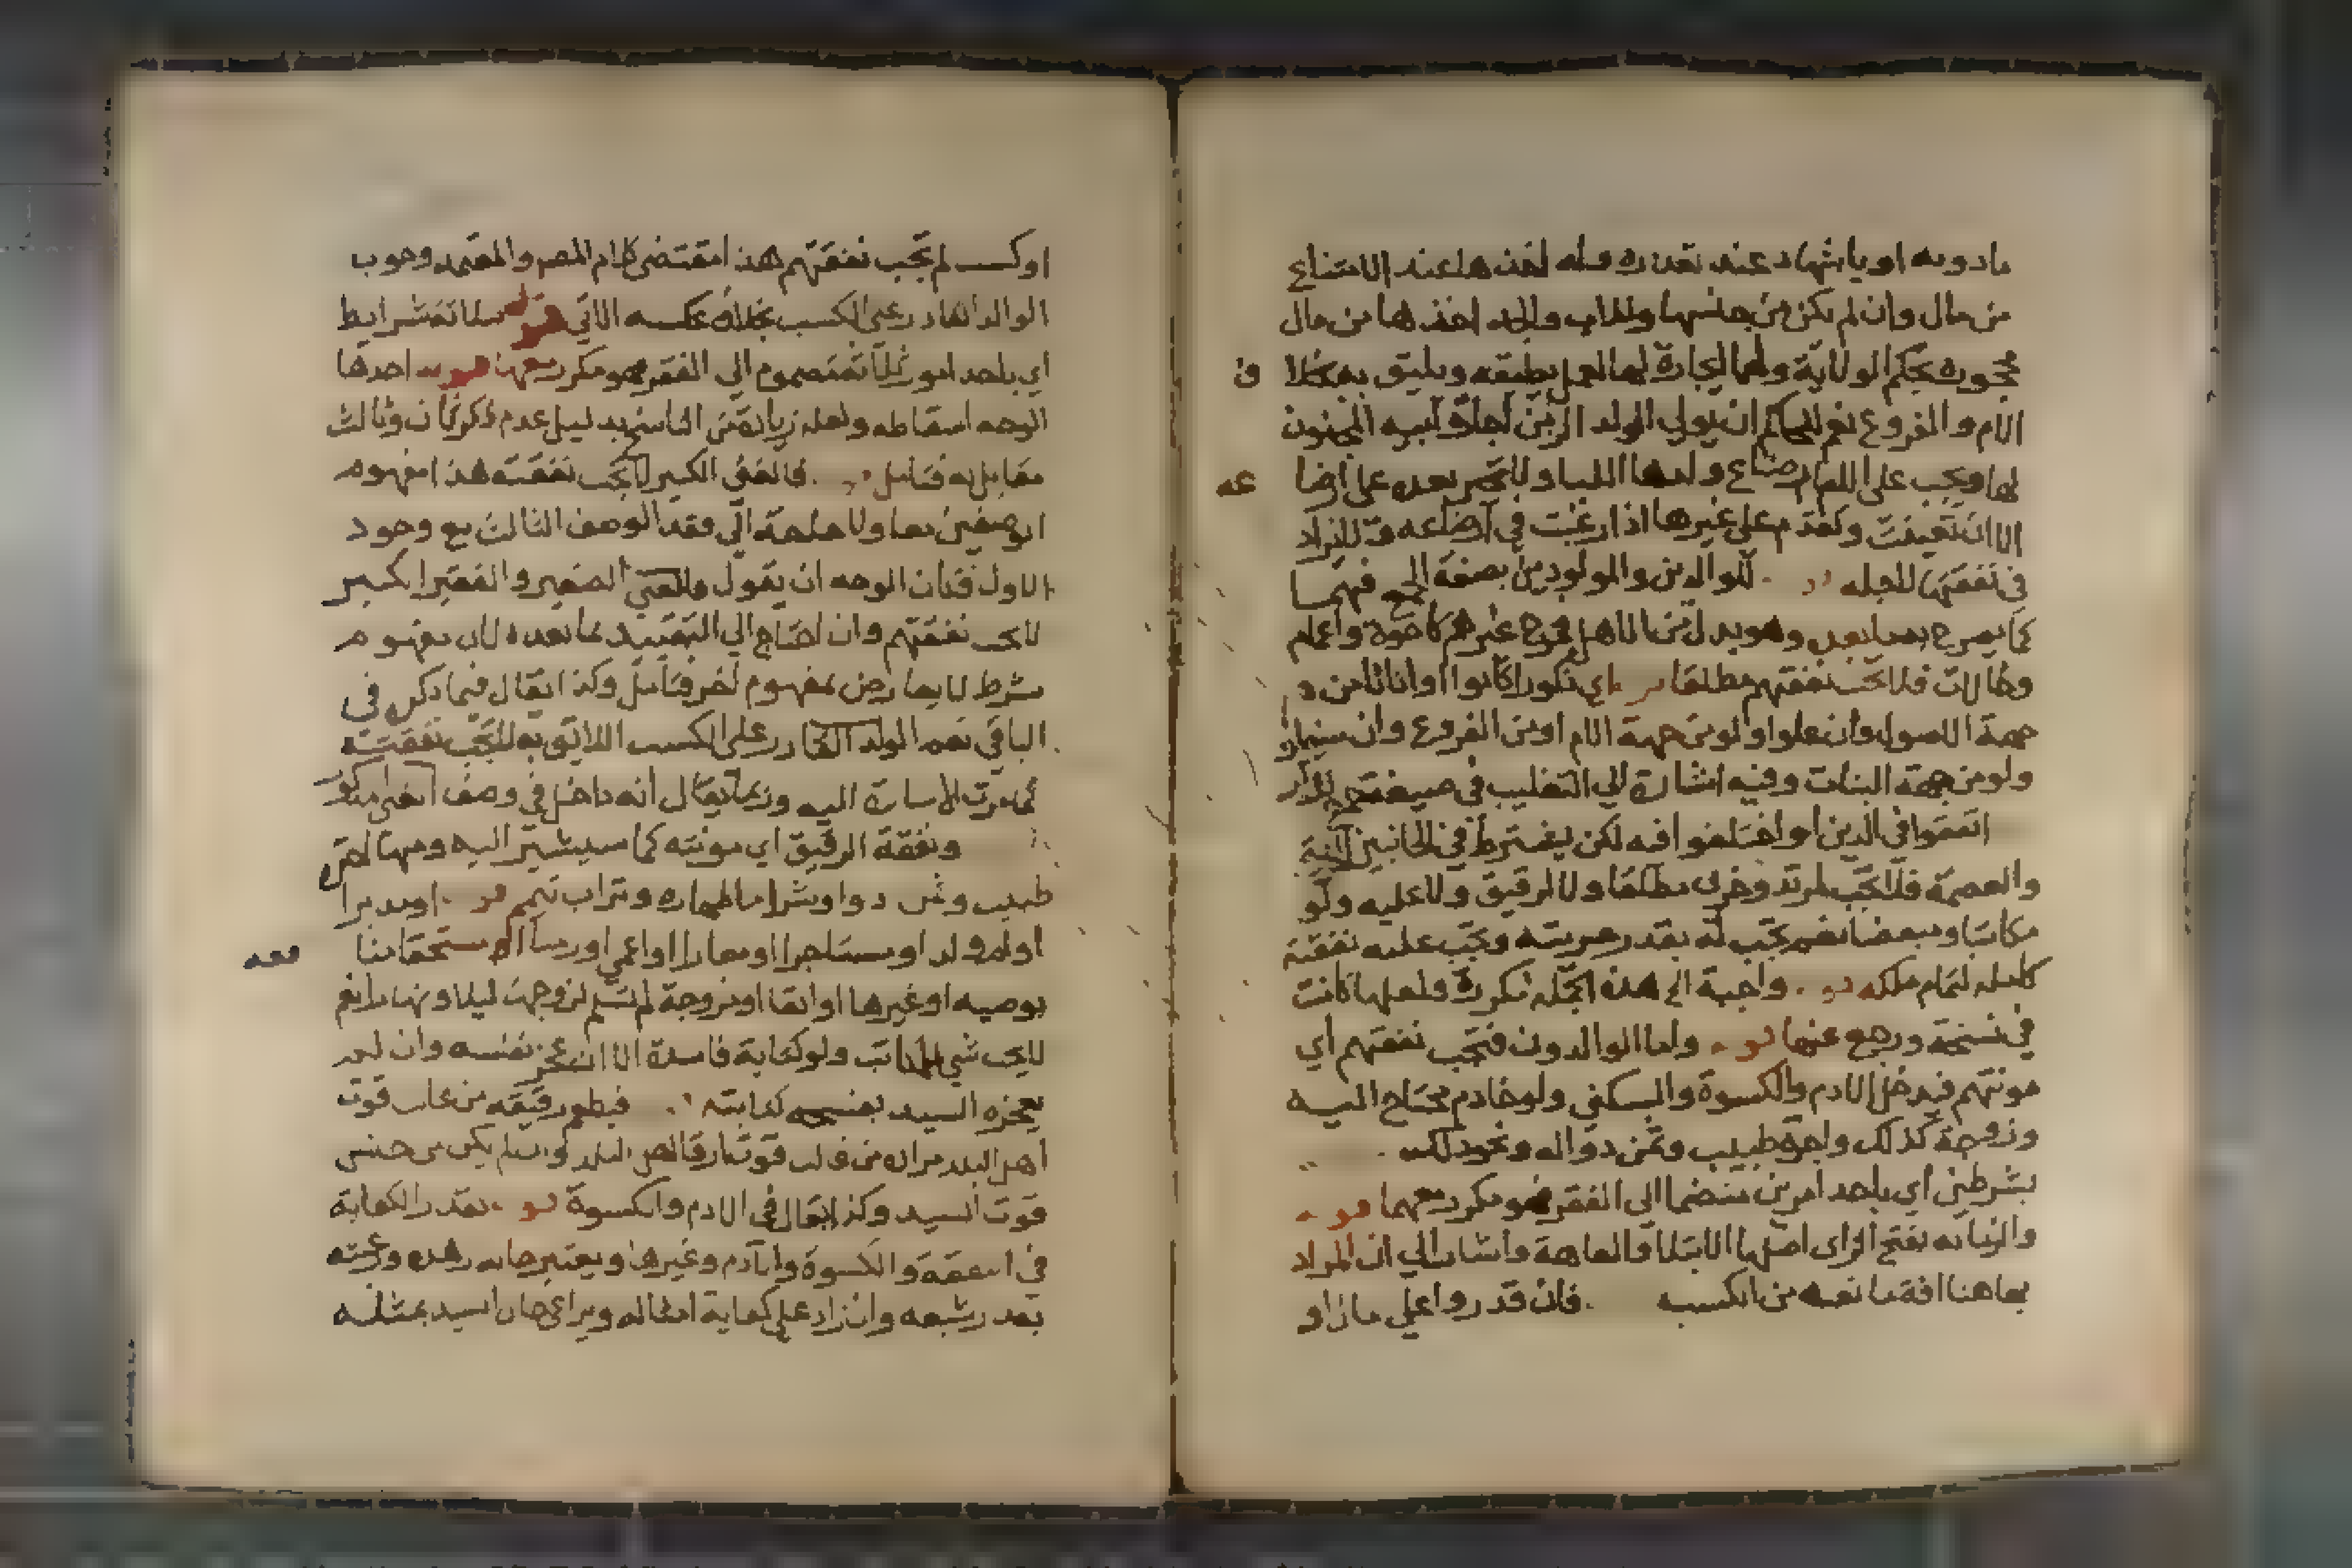 او باشهاد عند تعذره وله اخذها عند الامتناع
من مال وان لم يكن من جنسها وللاب والجد اخذها من مال
محجوره بحكم الولاية ولهما ايجاره لهما لعمل يطيقه ويليق به بخلاف
الام والفروع نعم للحاكم ان يولي الولد الزمن اجارة ابيه المجنون
لها ويجب على الام ارضاع ولدها اللبا ولا تجبر بعده على ارضاعه
الا ان تعينت وتقدم على غيرها اذا رغبت في ارضاعه ولا تزاد
في نفقتها لاجله . للوالدين والمولودين بصيغة الجمع فيهما
كما يصرح به ما بعده وهو بدل من الاهل فخرج غيرهم كاخوة واعمام
وخالات فلا تجب نفقتهم مطلقا اي ذكورا كانوا او اناثا من
جهة الاصول وان علوا ولو من جهة الام او من الفروع وان سفلوا
ولو من جهة البنات وفيه اشارة الي التغليب في صيغة
اتفقوا في الدين او اختلفوا فيه لكن يشترط في الجانبين الحرية
والعصمة فلا تجب لمرتد وحربي مطلقا ولا لرقيق ولا عليه ولو
مكاتبا ومبعضا نعم تجب له بقدر حريته وتجب عليه نفقة
كاملة لتمام ملكه قوله . واجبة الخ هذه الجملة مكررة ولعلها كانت
في نسخة ورجع عنها قوله . واما الوالدون فتجب نفقتهم اي
مونتهم فيدخل الادم والكسوة والسكني ولو خادم محتاج اليه
وزوجة كذلك واجرة طبيب وثمن دوا له ونحو ذلك .
بشرطين اي باحد امرين منضما الى الفقر فهو مكرر معهما قوله .
والزمانة بفتح الزاي اصلها الابتلا والعاهة واشار الي ان المراد
بها هنا افة تمنعه من الكسب . فان قدروا على مال او
او كسب لم تجب نفقتهم هذا مقتضى كلام المصر والمعتمد وجوب
الوالد القادر على الكسب بخلاف عكسه الاتي قوله بثلاثة شرايط
اي باحد امور ثلاثة مضموم الي الفقر فهو مكرر معها قوله احدها
الوجه اسقاطه ولعله زيادة من الناسخ بدليل عدم ذكر ثان وثالث
مقابل له فتامل . فالغني الكبير لا تجب نفقته هذا مفهوم
الوصفين معا ولا حاجة الي فقد الوصف الثالث مع وجود
الاول فكان الوجه ان يقول فالغني الصغير والفقير الكبير
لا تجب نفقتهم وان احتاج الي التقييد بما بعده لان مفهوم
شرط لا يعارض بمفهوم اخر فتامل وكذا يقال فيما ذكر في
الباقي نعم الولد القادر على الكسب اللائق به لا تجب نفقته
كما مرت الاشارة اليه وربما يقال انه داخل في وصف الغني
ونفقة الرقيق اي مونته كما سيشير اليه ومنها اجرة
طبيب وثمن دوا وشرا ما لطهارة وتراب تيمم قوله . او مدبرا
او ام ولد او مستاجرا او معارا او اعمي او زمنا او مستحقا منافعه
بوصية او غيرها او ابقا او مزوجة لم تسلم لزوجها ليلا ونهارا نعم
لا يجب شي لمكاتب ولو كتابة فاسدة الا ان عجز نفسه وان لم
يعجزه السيد بفسخ كتابته . فيطعم رقيقه من غالب قوت
اهل البلد مراده من غالب قوت ارقا اهل البلد وان لم يكن من جنس
قوت السيد وكذا يقال في الادم والكسوة قوله . بقدر الكفاية
في النفقة والكسوة والادم وغيرها ويعتبر حاله زهده ورغبته
بقدر شبعه وان زاد على كفاية امثاله ويراعى حال السيد بمثله